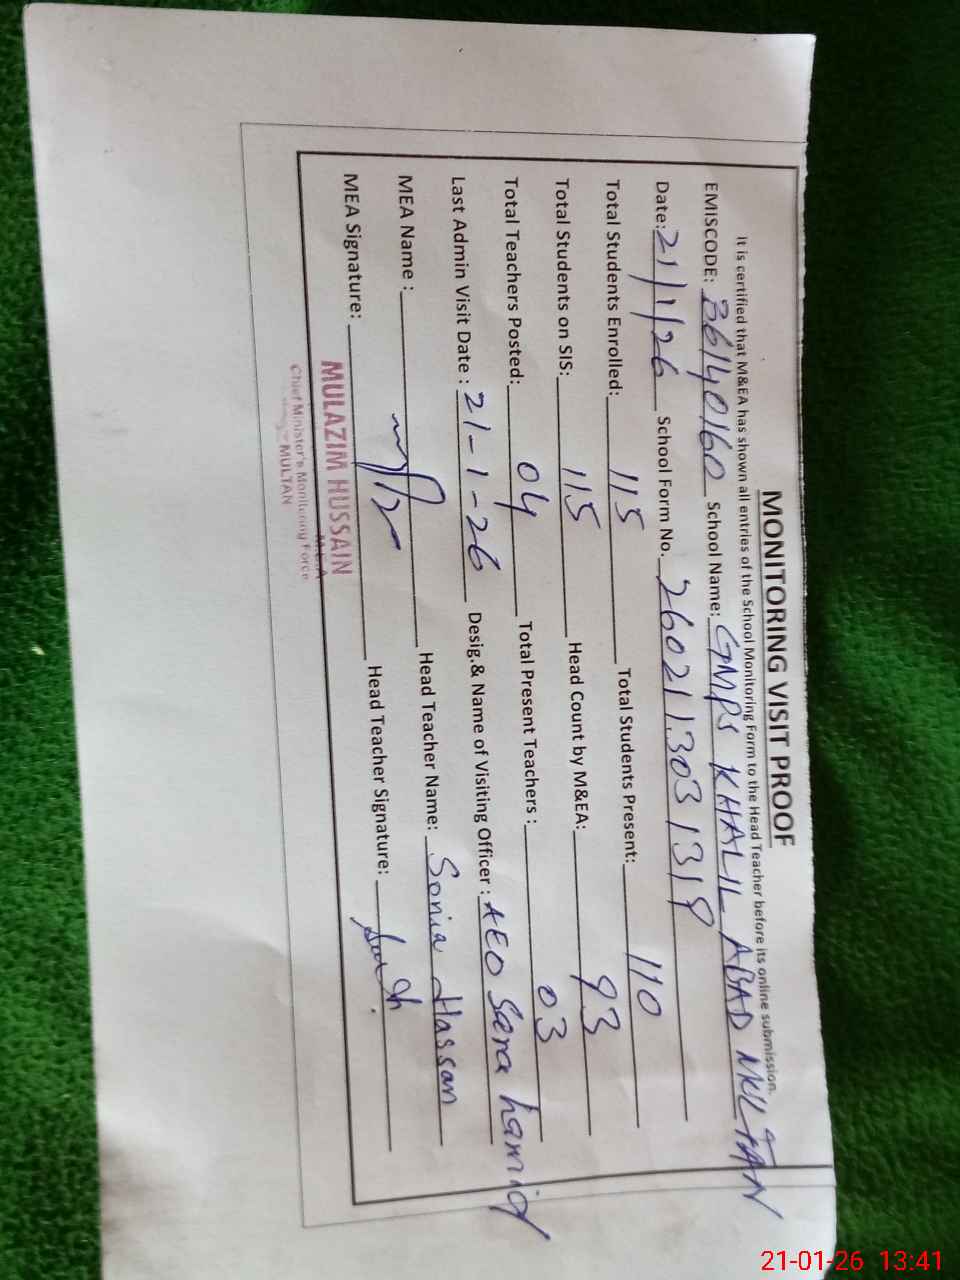 MONITORING VISIT PROOF
It is certified that M&EA has shown all entries of the School Monitoring Form to the Head Teacher before its online submission.
EMISCODE: 36140160 School Name: GMPS KHALIL ABAD MULTAN
Date: 21/1/26 School Form No. 260211303 1319
Total Students Enrolled: 115 Total Students Present: 110
Total Students on SIS: 115 Head Count by M&EA: 93
Total Teachers Posted: 04 Total Present Teachers : 03
Last Admin Visit Date : 21-1-26 Desig.& Name of Visiting Officer : AEO Sara hamid
MEA Name : Head Teacher Name: Sonia Hassan
MEA Signature: Head Teacher Signature:
MULAZIM HUSSAIN
M.E.A
Chief Minister's Monitoring Force
MULTAN
21-01-26 13:41